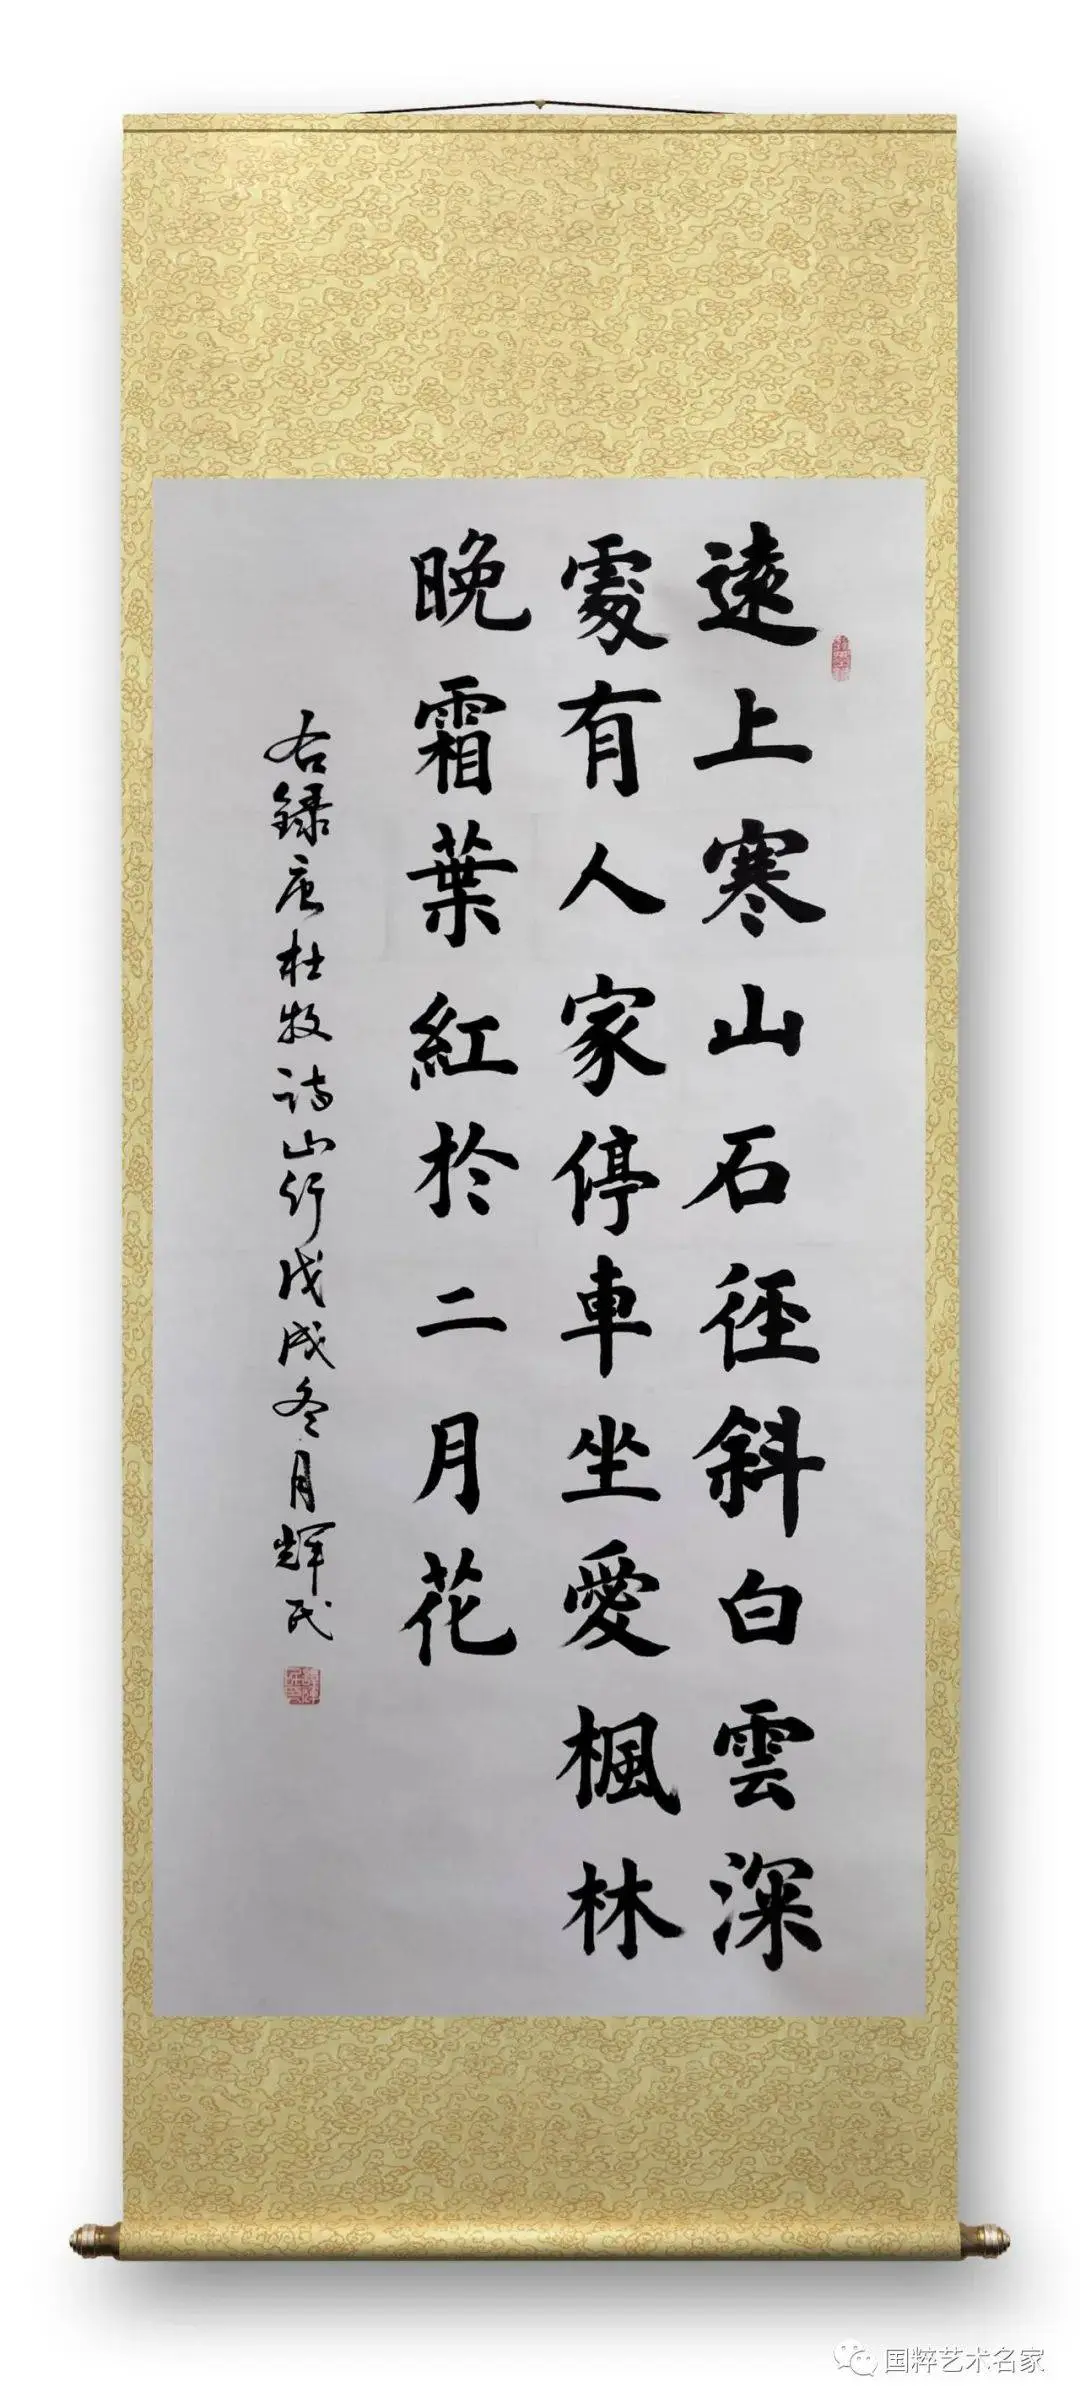 遠上寒山石徑斜白雲深
處有人家停車坐愛楓林
晚霜葉紅於二月花
右録唐杜牧诗山行戊戌冬月輝民
国粹艺术名家